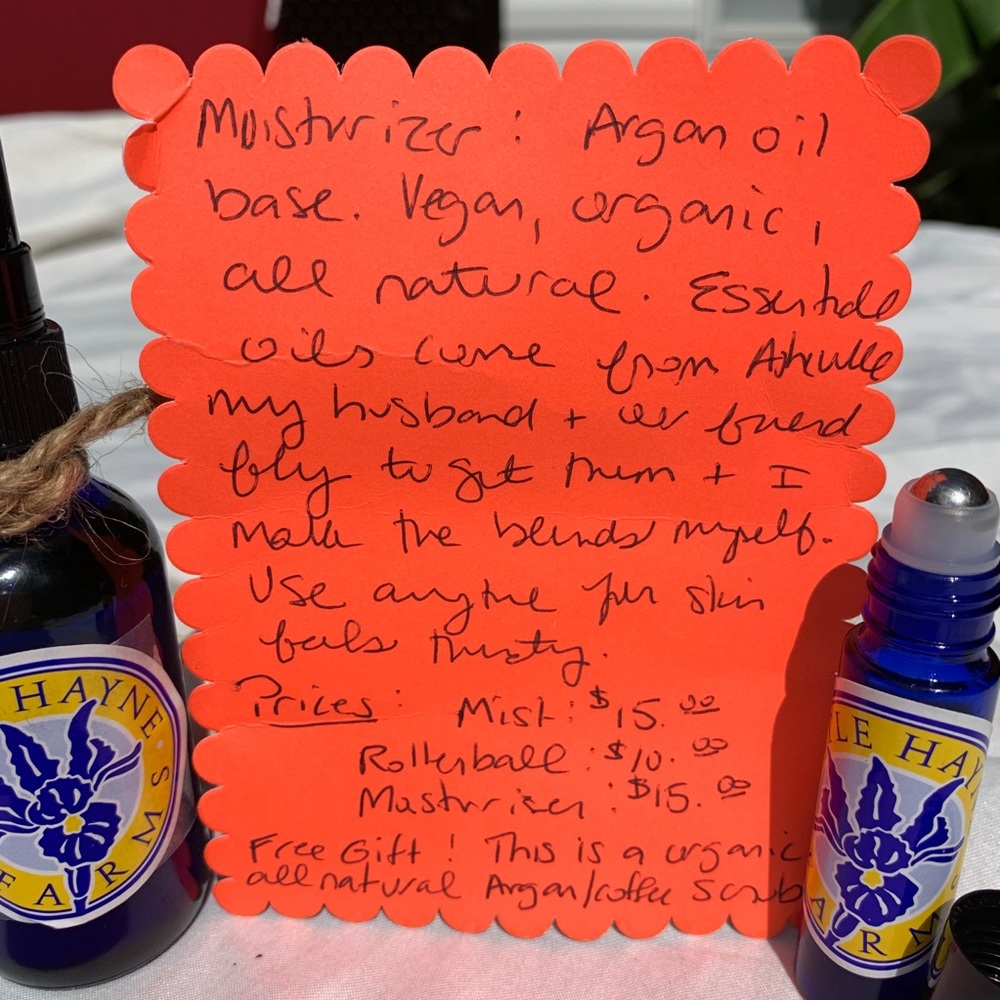 Moisturizer: Argan oil
base. Vegan, organic,
all natural. Essential
oils come from Asheville
my husband + our friend
fly to get them + I
make the blends myself.
Use anytime your skin
feels thirsty.
Prices: Mist: $15.00
Rollerball: $10.00
Moisturiser: $15.00
Free Gift! This is a organic
all natural Argan/coffee Scrub
HAYNE
FARMS
LE HAYN
ARM